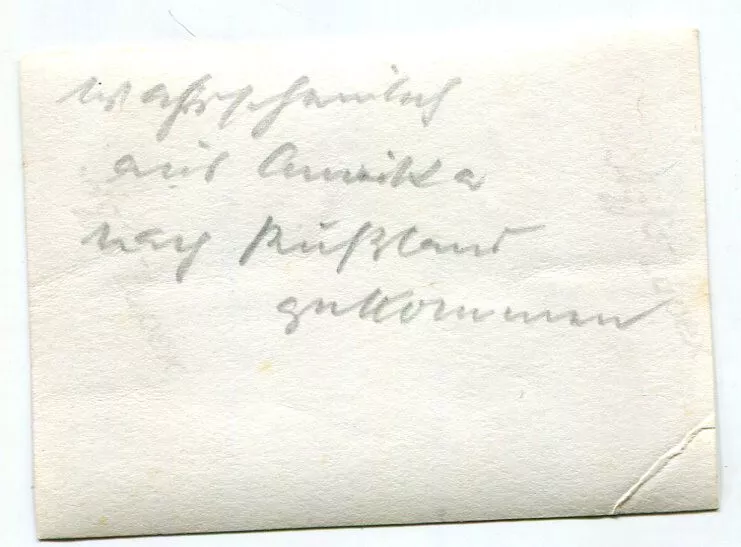 wahrscheinlich
aus Amerika
nach Rußland
gekommen